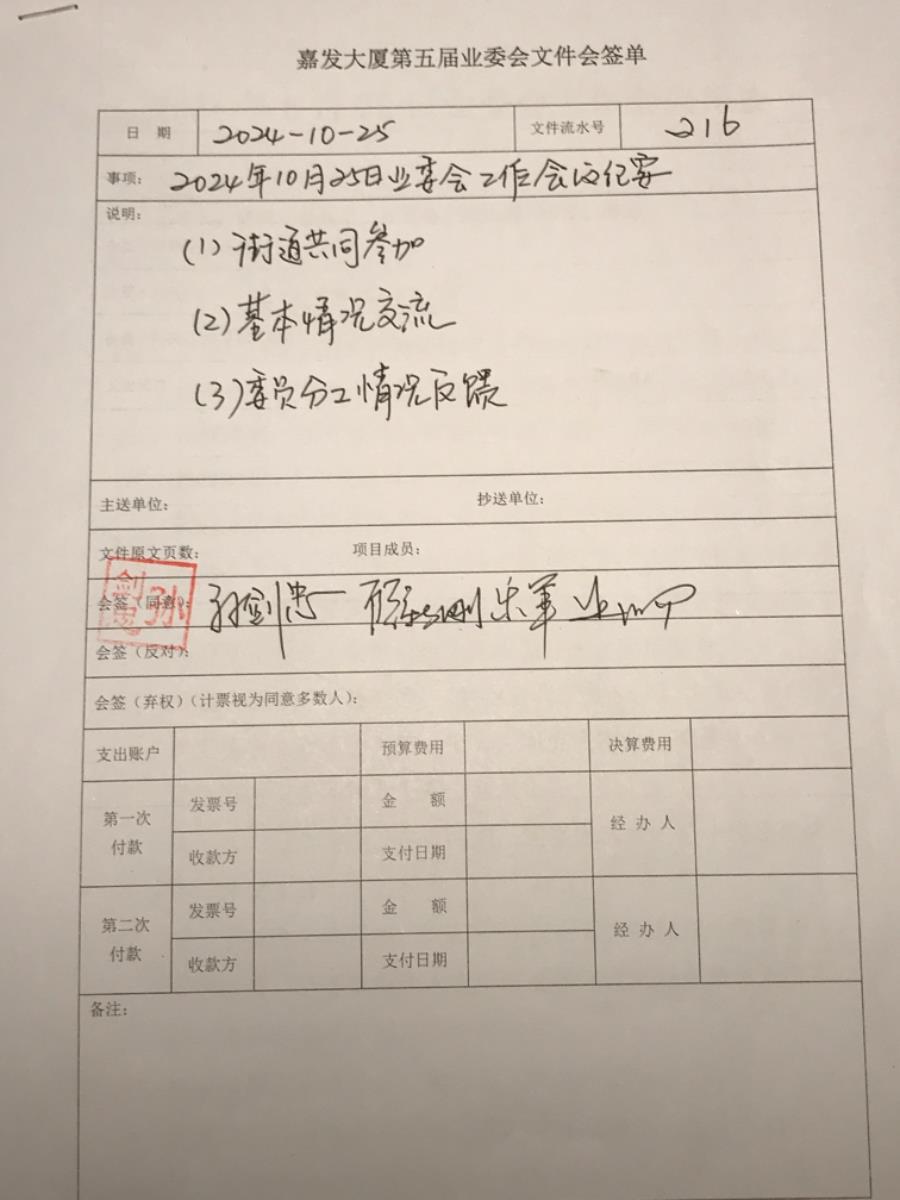 嘉发大厦第五届业委会文件会签单
日 期 2024-10-25 文件流水号 216
事项: 2024年10月25日业委会工作会议纪要
说明:
(1) 街道共同参加
(2) 基本情况交流
(3) 委员分工情况反馈
主送单位: 抄送单位:
文件原文页数: 项目成员:
会签(同意): 孙剑忠
会签(反对):
会签(弃权)(计票视为同意多数人):
支出账户 预算费用 决算费用
第一次付款 发票号 金 额 经 办 人
收款方 支付日期
第二次付款 发票号 金 额 经 办 人
收款方 支付日期
备注: